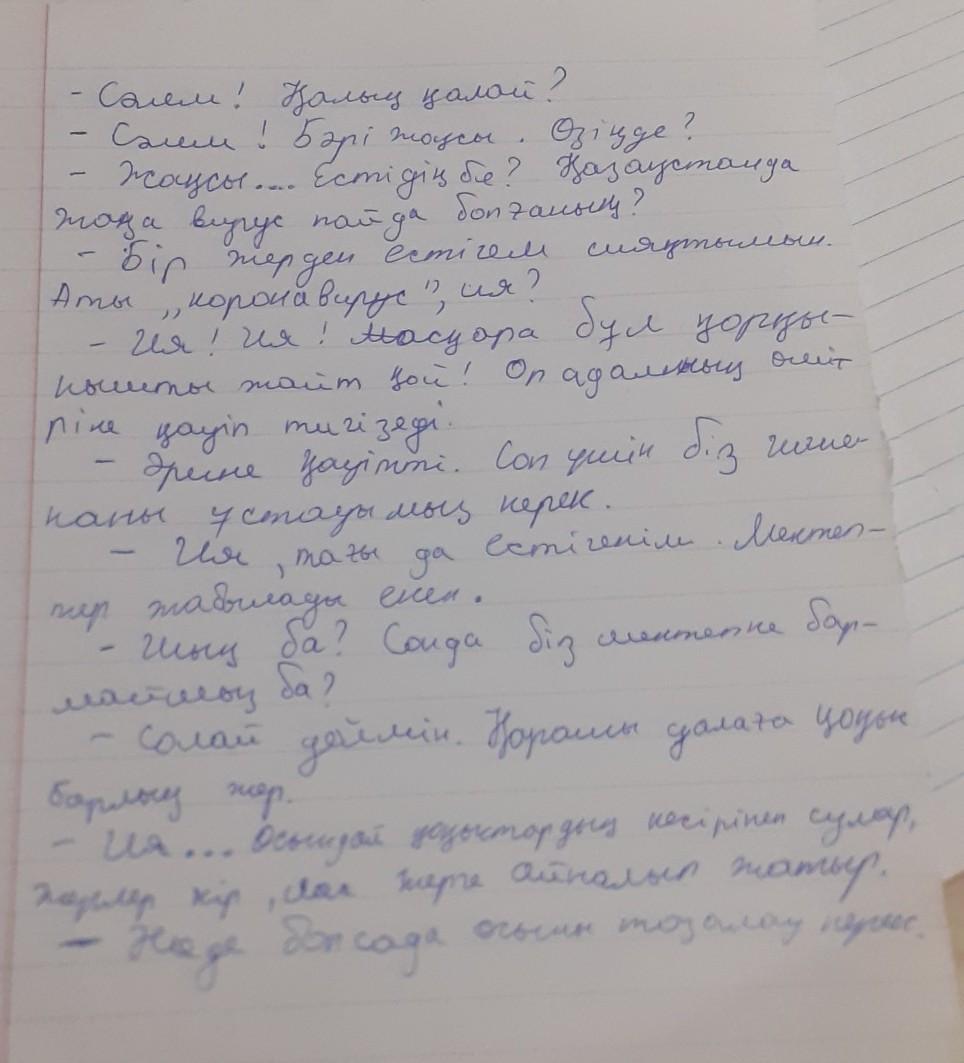 - Сәлем! Қалың қалай?
- Сәлем! Бәрі жақсы. Өзіңде?
- Жақсы.... Естідің бе? Қазақстанда
жаңа вирус пайда болғаның?
- Бір жерден естігем сияқтымын.
Аты „коронавирус", ия?
- Ия! Ия! Масқара бұл қорқы-
нышты жайт қой! Ол адамның өмі
ріне қауіп тигізеді.
- Әрине қауіпті. Сол үшін біз гигие-
наны ұстауымыз керек.
- Ия, тағы да естігенім. Мектеп-
тер жабылады екен.
- Шың ба? Сонда біз мектепке бар-
маймыз ба?
- Солай деймін. Қарашы далаға қоқын
барлық жер.
- Ия... Осындай қоқыстардың кесірінен сулар,
жерлер кір, лас жерге айналып жатыр.
- Не де болсада осыны тазалау керек.